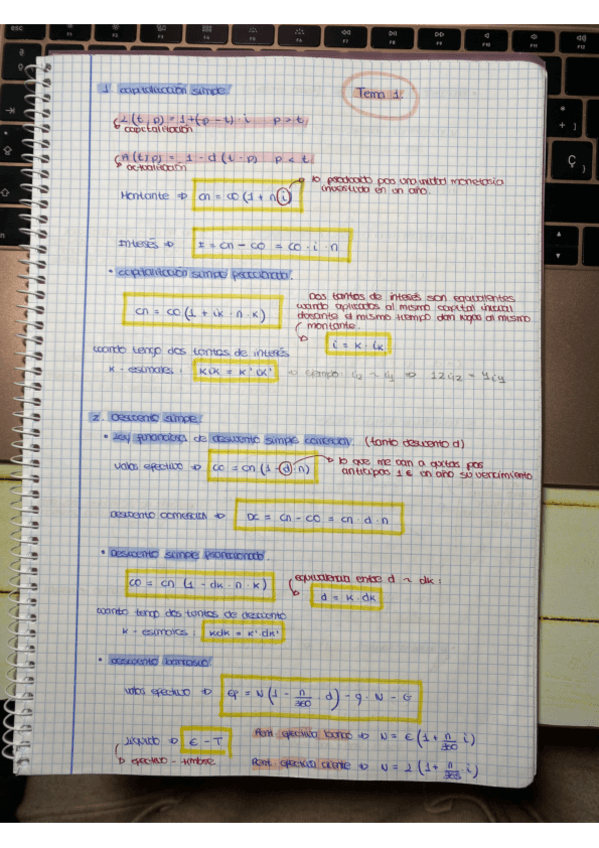 Tema 1.
1. capitalización simple:
L(t,p) = 1+(p-t)·i p>t
capitalización
A(t,p) = 1-d(t-p) p<t
actualización
lo producido por una unidad monetaria
invertida en un año.
Montante ⇒ Cn = C0 (1 + n i)
Interés ⇒ I = Cn - C0 = C0 · i · n
• capitalización simple fraccionado.
Dos tantos de interés son equivalentes
cuando aplicados al mismo capital inicial
durante el mismo tiempo dan lugar al mismo
montante.
Cn = C0 (1 + ik · n · k)
i = k · ik
cuando tengo dos tantos de interés
k-esimales: k ik = k' ik' ⇒ ejemplo: i12 ~ i4 ⇒ 12 i12 = 4 i4
2. Descuento simple:
• Ley financiera de descuento simple comercial. (tanto descuento d)
valor efectivo ⇒ C0 = Cn (1 - d · n)
lo que me van a quitar por
anticipar 1€ un año su vencimiento
descuento comercial ⇒ DC = Cn - C0 = Cn · d · n
• Descuento simple fraccionado.
C0 = Cn (1 - dk · n · k)
equivalencia entre d ~ dk:
d = k · dk
cuanto tengo dos tantos de descuento
k-esimales: k dk = k' dk'
• descuento bancario
valor efectivo ⇒ = N (1 - n/360 · d) - g · N - G
Líquido ⇒ E - T
efectivo - timbre
Rent. efectiva banco ⇒ N = E (1 + n/360 i)
Rent. efectiva cliente ⇒ N = L (1 + n/365 · i)